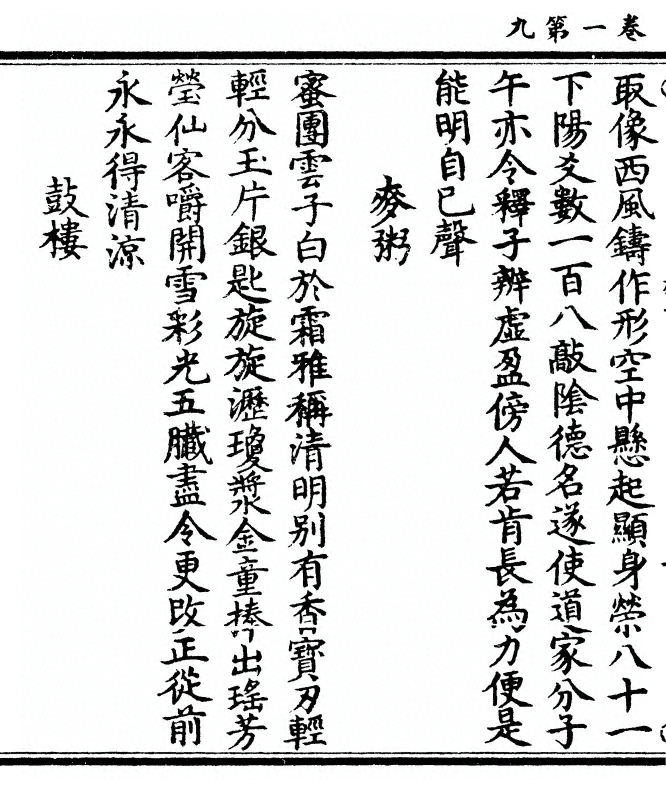 卷一第九
取像西風鑄作形空中懸起顯身榮八十一
下陽爻數一百八敲陰德名遂使道家分子
午亦令釋子辨虛盈傍人若肯長為力便是
能明自已聲
麥粥
蜜團雲子白於霜雅稱清明别有香寶刃輕
輕分玉片銀匙旋旋瀝瓊漿金童捧出瑤芳
瑩仙客嚼開雪彩光五臟盡令更改正從前
永永得清涼
鼓樓